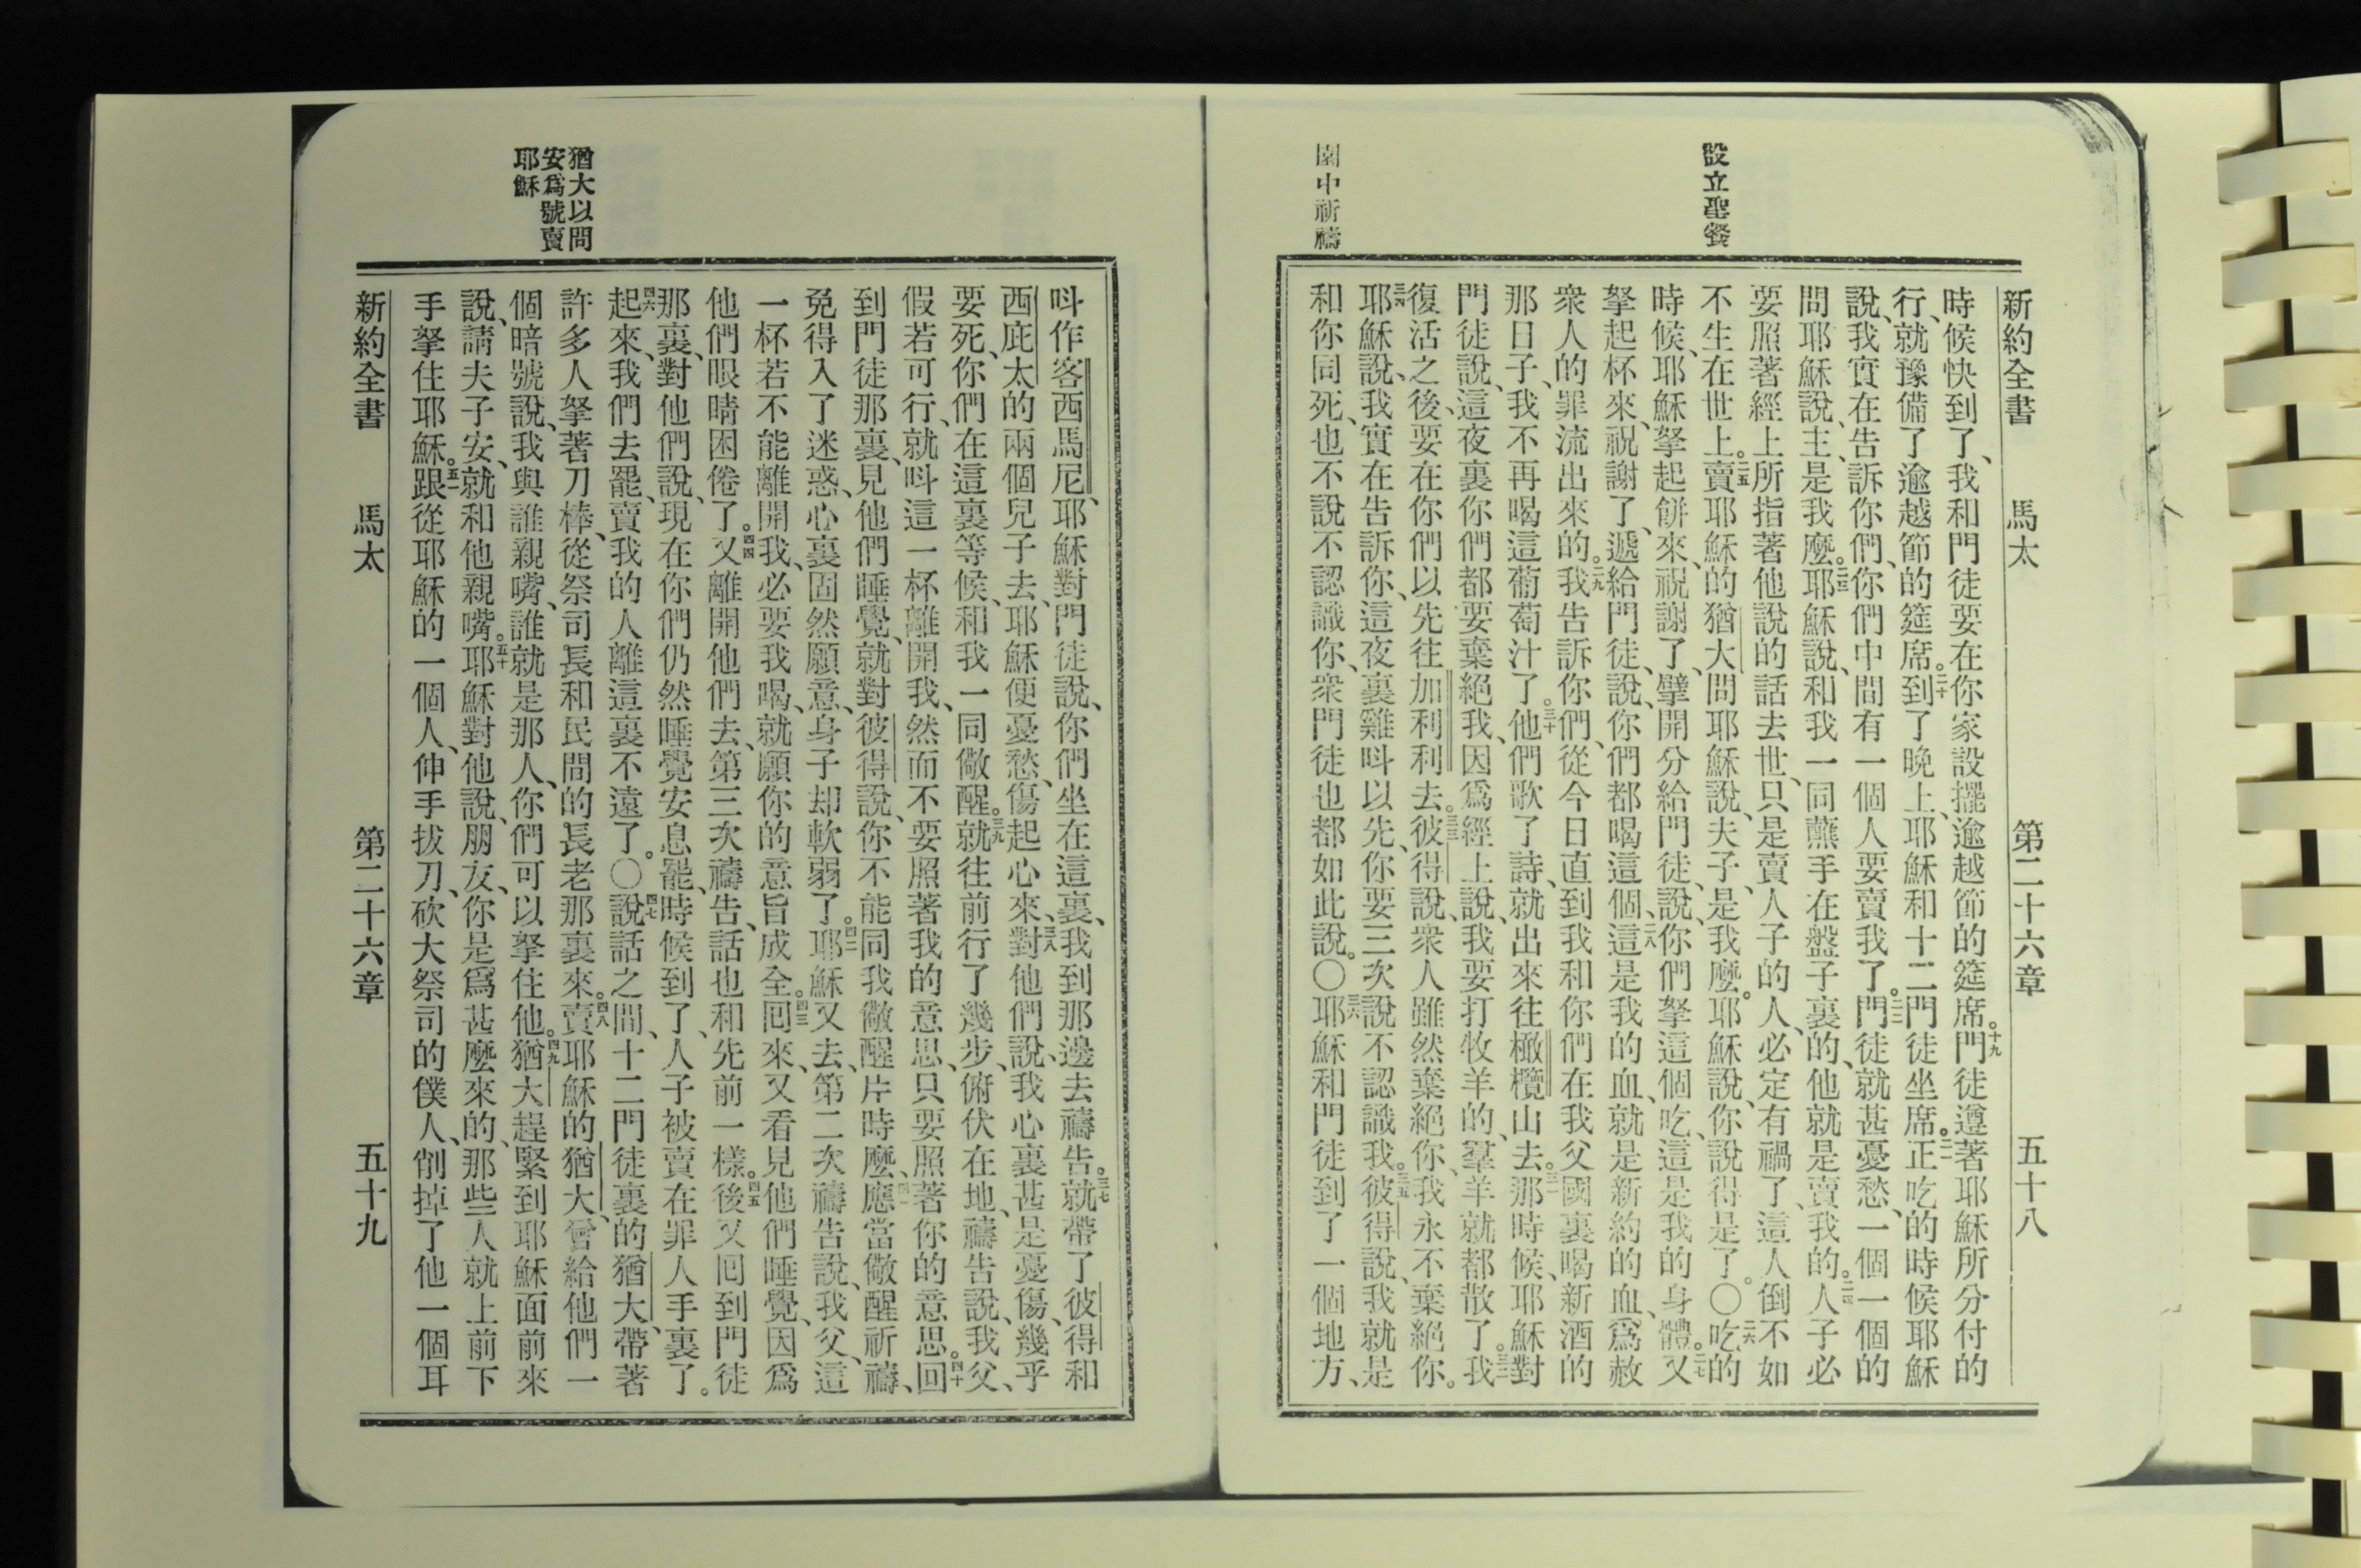 設立聖餐
園中祈禱
新約全書 馬太 第二十六章 五十八
時候快到了、我和門徒要在你家設擺逾越節的筵席。十九門徒遵著耶穌所分付的
行、就豫備了逾越節的筵席。二十到了晚上、耶穌和十二門徒坐席。二一正吃的時候耶穌
說、我實在告訴你們、你們中間有一個人要賣我了。二二門徒就甚憂愁、一個一個的
問耶穌說、主、是我麼。二三耶穌說、和我一同蘸手在盤子裏的、他就是賣我的。二四人子必
要照著經上所指著他說的話去世、只是賣人子的人、必定有禍了、這人倒不如
不生在世上。二五賣耶穌的猶大問耶穌說、夫子、是我麼。耶穌說、你說得是了。○二六吃的
時候、耶穌拏起餅來、祝謝了、擘開分給門徒、說、你們拏這個吃、這是我的身體。二七又
拏起杯來、祝謝了、遞給門徒、說、你們都喝這個、二八這是我的血、就是新約的血、爲赦
衆人的罪流出來的。二九我告訴你們、從今日直到我和你們在我父國裏喝新酒的
那日子、我不再喝這葡萄汁了。三十他們歌了詩、就出來往橄欖山去。三一那時候、耶穌對
門徒說、這夜裏你們都要棄絕我、因爲經上說、我要打牧羊的、羣羊就都散了。三二我
復活之後、要在你們以先往加利利去。三三彼得說、衆人雖然棄絕你、我永不棄絕你。
三四耶穌說、我實在告訴你、這夜裏雞呌以先、你要三次說不認識我。三五彼得說、我就是
和你同死、也不說不認識你、衆門徒也都如此說。○三六耶穌和門徒到了一個地方、
猶大以問
安爲號賣
耶穌
呌作客西馬尼、耶穌對門徒說、你們坐在這裏、我到那邊去禱告。三七就帶了彼得和
西庇太的兩個兒子去、耶穌便憂愁、傷起心來、三八對他們說、我心裏甚是憂傷、幾乎
要死、你們在這裏等候、和我一同儆醒。三九就往前行了幾步、俯伏在地、禱告說、我父、
假若可行、就呌這一杯離開我、然而不要照著我的意思、只要照著你的意思。四十回
到門徒那裏、見他們睡覺、就對彼得說、你不能同我儆醒片時麼、四一應當儆醒祈禱、
免得入了迷惑、心裏固然願意、身子却軟弱了。四二耶穌又去、第二次禱告說、我父、這
一杯若不能離開我、必要我喝、就願你的意旨成全。四三囘來、又看見他們睡覺、因爲
他們眼睛困倦了。四四又離開他們去、第三次禱告、話也和先前一樣。四五後又囘到門徒
那裏、對他們說、現在你們仍然睡覺安息罷、時候到了、人子被賣在罪人手裏了。
四六起來、我們去罷、賣我的人離這裏不遠了。○四七說話之間、十二門徒裏的猶大、帶著
許多人拏著刀棒、從祭司長和民間的長老那裏來。四八賣耶穌的猶大、曾給他們一
個暗號說、我與誰親嘴、誰就是那人、你們可以拏住他。四九猶大趕緊到耶穌面前來
說、請夫子安、就和他親嘴。五十耶穌對他說、朋友、你是爲甚麼來的、那些人就上前下
手拏住耶穌。五一跟從耶穌的一個人、伸手拔刀、砍大祭司的僕人、削掉了他一個耳
新約全書 馬太 第二十六章 五十九